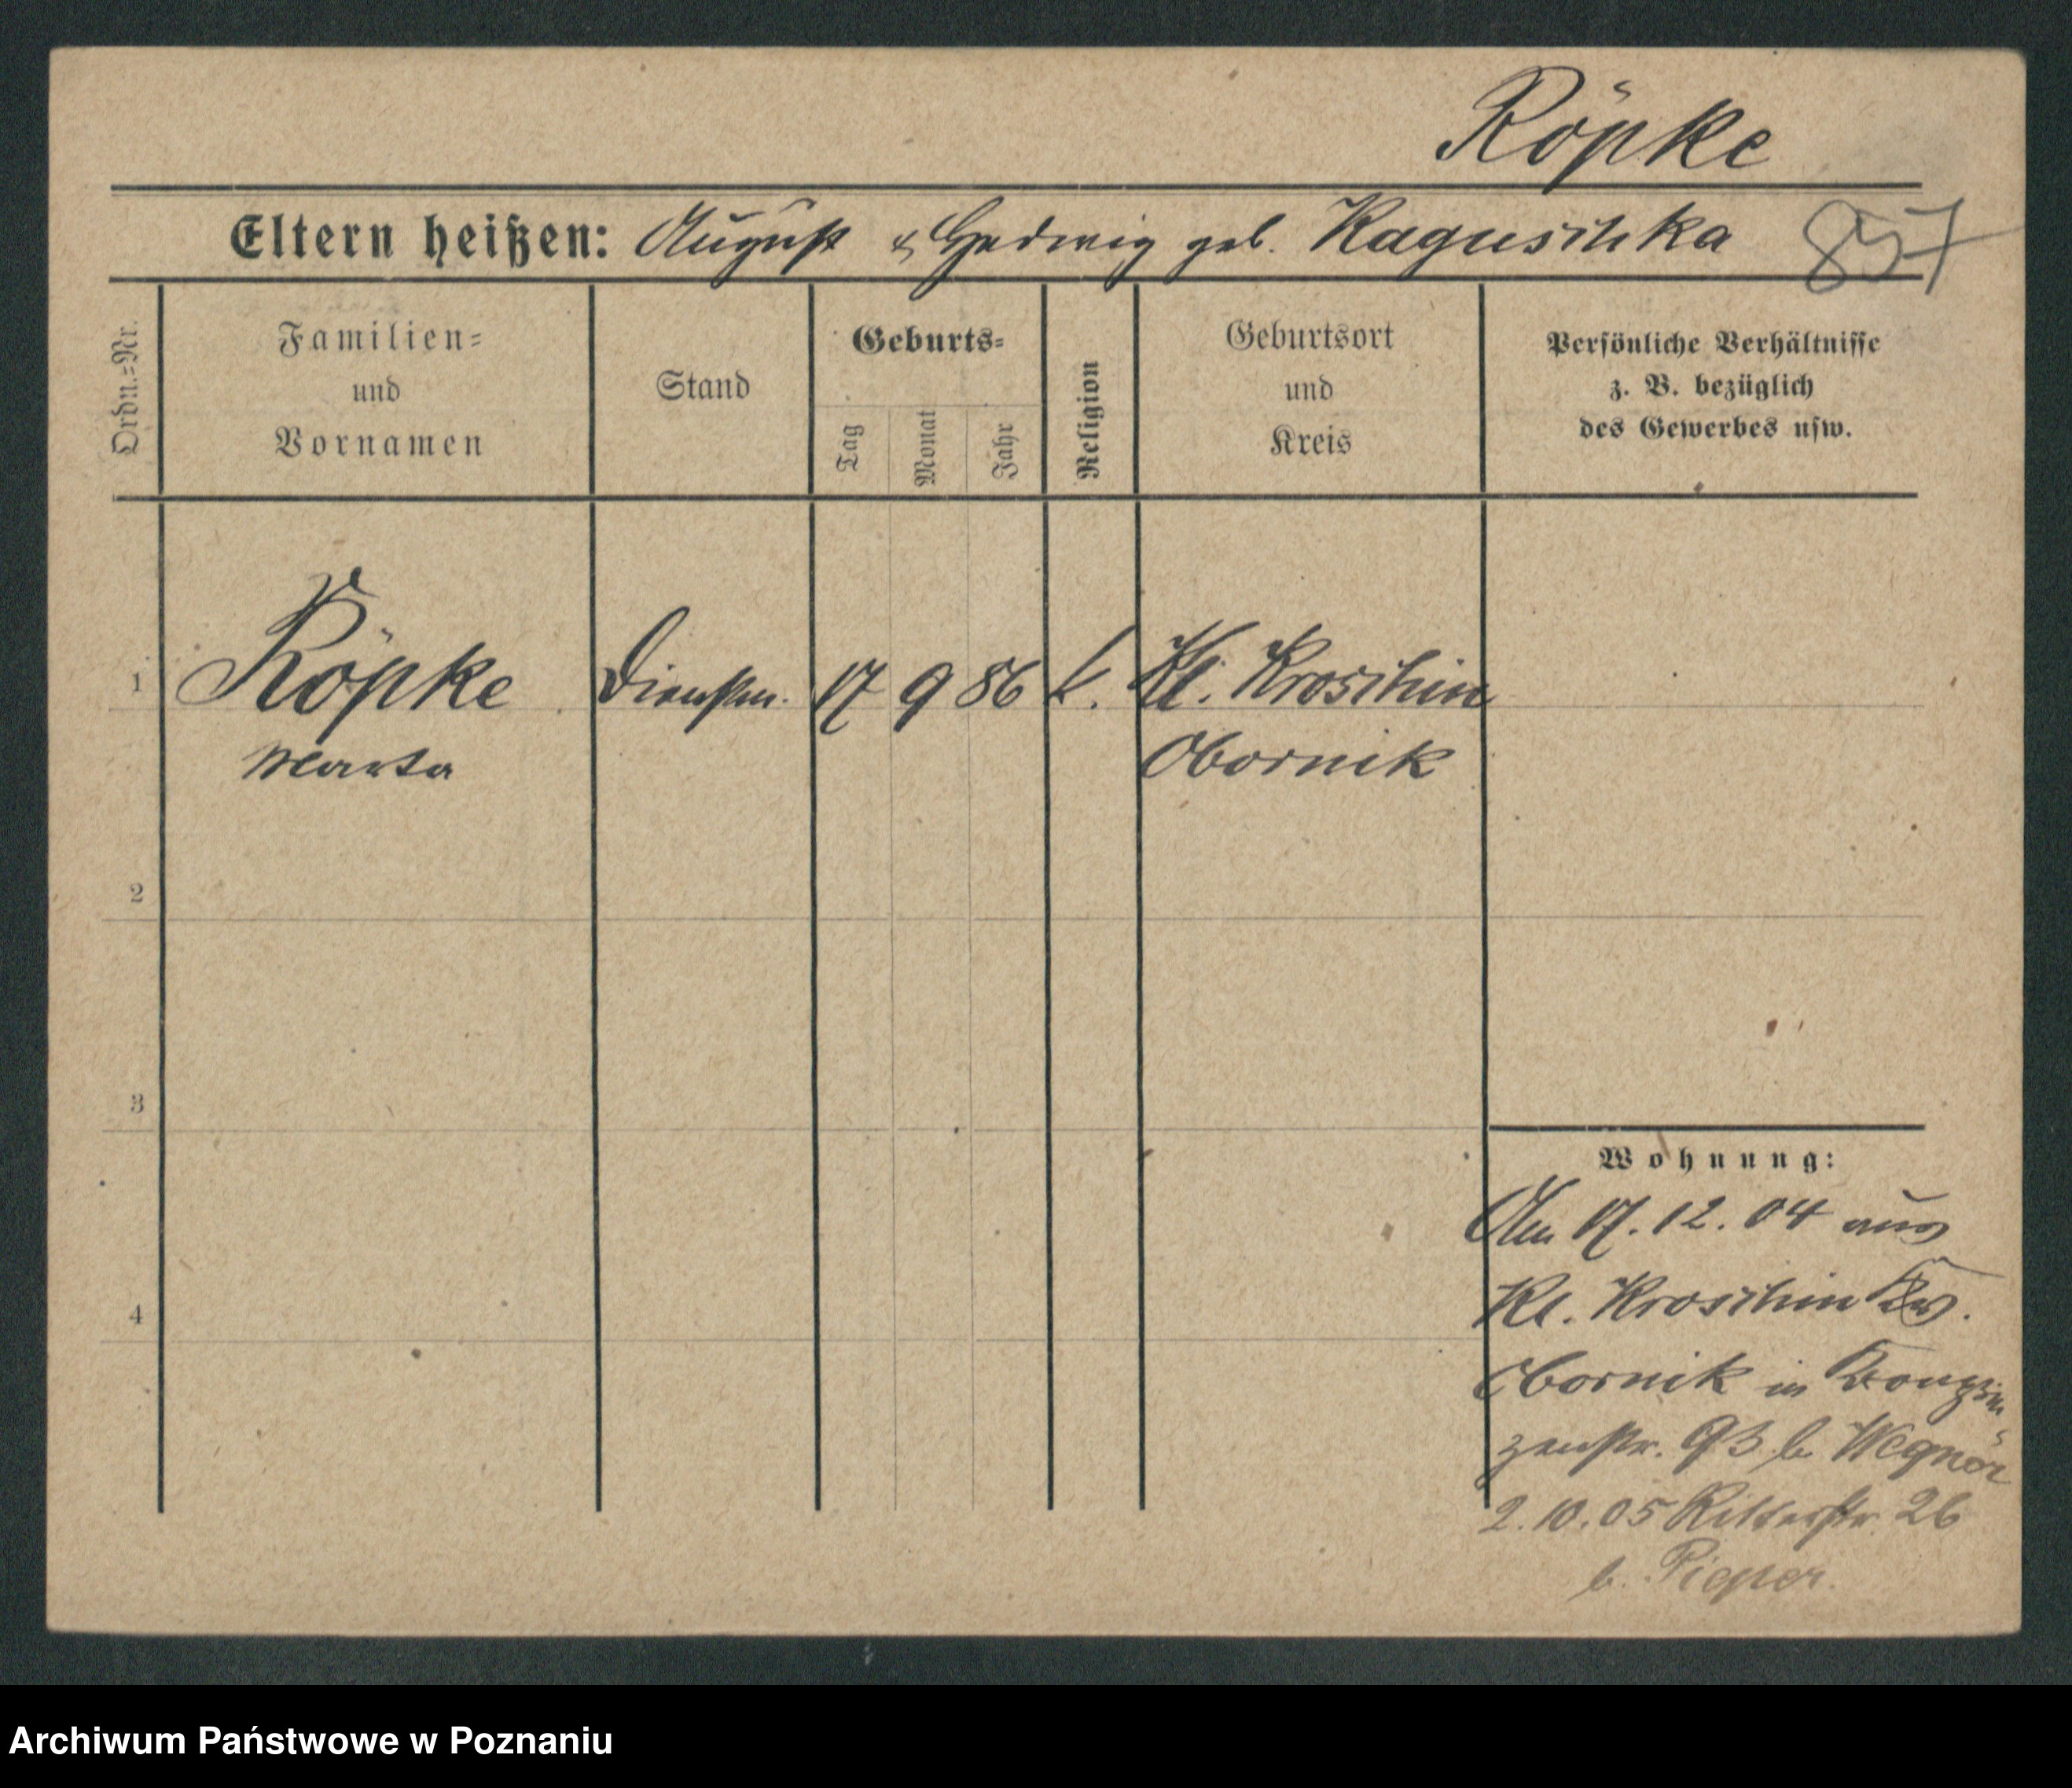 Röpke
Eltern heißen: August & Hedwig geb. Raguschka
857
Ordn.=Nr.
Familien=
und
Vornamen
Stand
Geburts=
Tag
Monat
Jahr
Religion
Geburtsort
und
Kreis
Persönliche Verhältnisse
z. B. bezüglich
des Gewerbes usw.
1 Röpke Dienstm. 17 9 86 k. Kl. Kroschin
Marta Obornik
2
3
4
Wohnung:
Am 17.12.04 aus
Kl. Kroschin Krs.
Obornik in Kronprin
zenstr. 93 b. Wegner
2.10.05 Ritterstr. 26
b. Pieper.
Archiwum Państwowe w Poznaniu